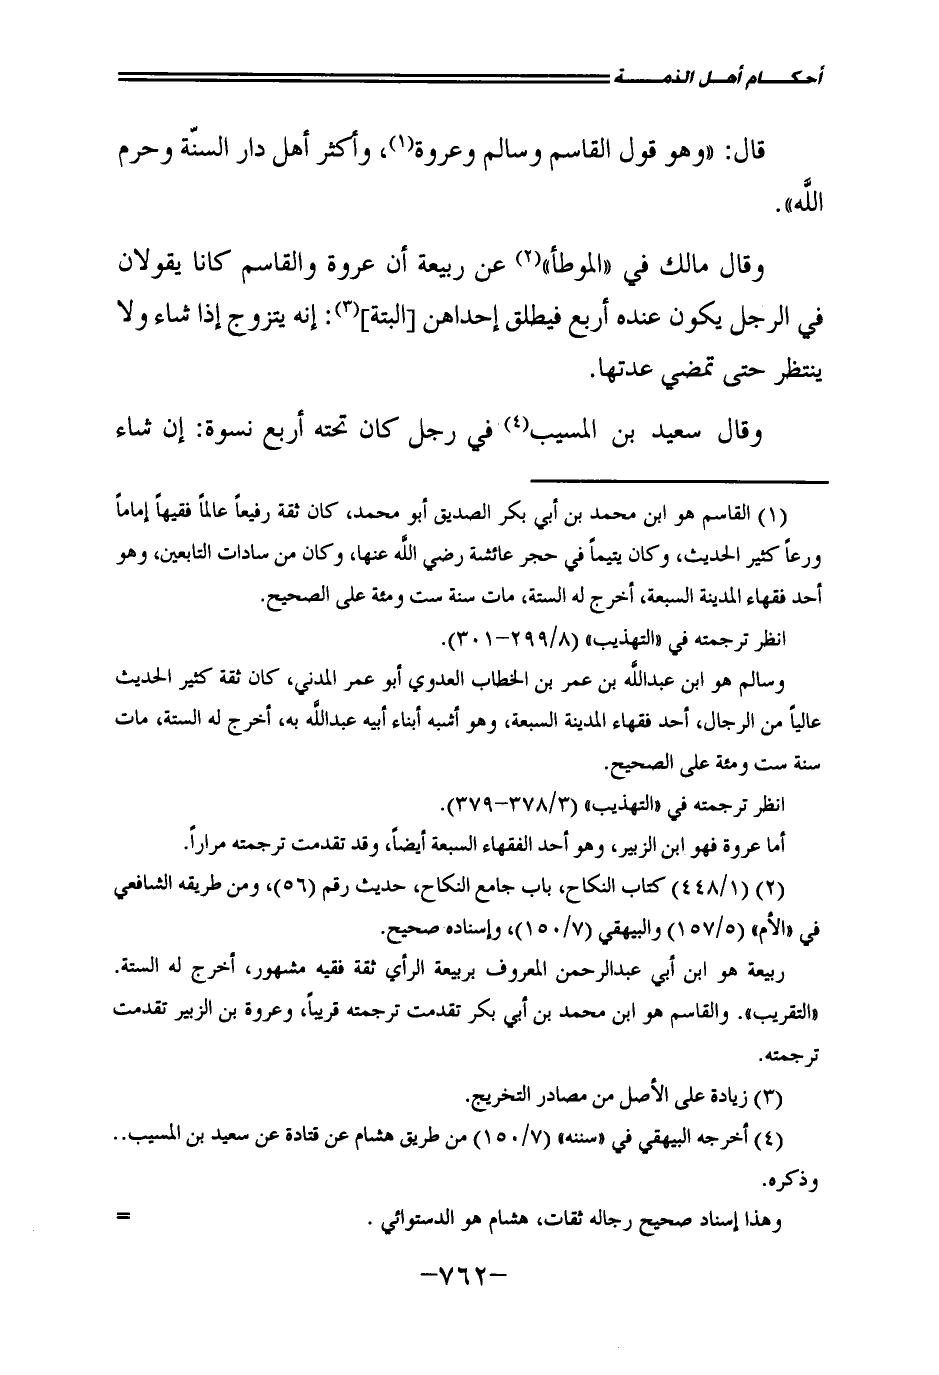 أحكـــام أهـل الذمـــة
قال: «وهو قول القاسم وسالم وعروة(١)، وأكثر أهل دار السنّة وحرم
اللَّه».
وقال مالك في «الموطأ»(٢) عن ربيعة أن عروة والقاسم كانا يقولان
في الرجل يكون عنده أربع فيطلق إحداهن [البتة](٣): إنه يتزوج إذا شاء ولا
ينتظر حتى تمضي عدتها.
وقال سعيد بن المسيب(٤) في رجل كان تحته أربع نسوة: إن شاء
(١) القاسم هو ابن محمد بن أبي بكر الصديق أبو محمد، كان ثقة رفيعاً عالماً فقيهاً إماماً
ورعاً كثير الحديث، وكان يتيماً في حجر عائشة رضي اللَّه عنها، وكان من سادات التابعين، وهو
أحد فقهاء المدينة السبعة، أخرج له الستة، مات سنة ست ومئة على الصحيح.
انظر ترجمته في «التهذيب» (٨/٢٩٩-٣٠١).
وسالم هو ابن عبداللَّه بن عمر بن الخطاب العدوي أبو عمر المدني، كان ثقة كثير الحديث
عالياً من الرجال، أحد فقهاء المدينة السبعة، وهو أشبه أبناء أبيه عبداللَّه به، أخرج له الستة، مات
سنة ست ومئة على الصحيح.
انظر ترجمته في «التهذيب» (٣/٣٧٨-٣٧٩).
أما عروة فهو ابن الزبير، وهو أحد الفقهاء السبعة أيضاً، وقد تقدمت ترجمته مراراً.
(٢) (١/٤٤٨) كتاب النكاح، باب جامع النكاح، حديث رقم (٥٦)، ومن طريقه الشافعي
في «الأم» (٥/١٥٧) والبيهقي (٧/١٥٠)، وإسناده صحيح.
ربيعة هو ابن أبي عبدالرحمن المعروف بربيعة الرأي ثقة فقيه مشهور، أخرج له الستة.
«التقريب». والقاسم هو ابن محمد بن أبي بكر تقدمت ترجمته قريباً، وعروة بن الزبير تقدمت
ترجمته.
(٣) زيادة على الأصل من مصادر التخريج.
(٤) أخرجه البيهقي في «سننه» (٧/١٥٠) من طريق هشام عن قتادة عن سعيد بن المسيب..
وذكره.
وهذا إسناد صحيح رجاله ثقات، هشام هو الدستوائي . =
-٧٦٢-